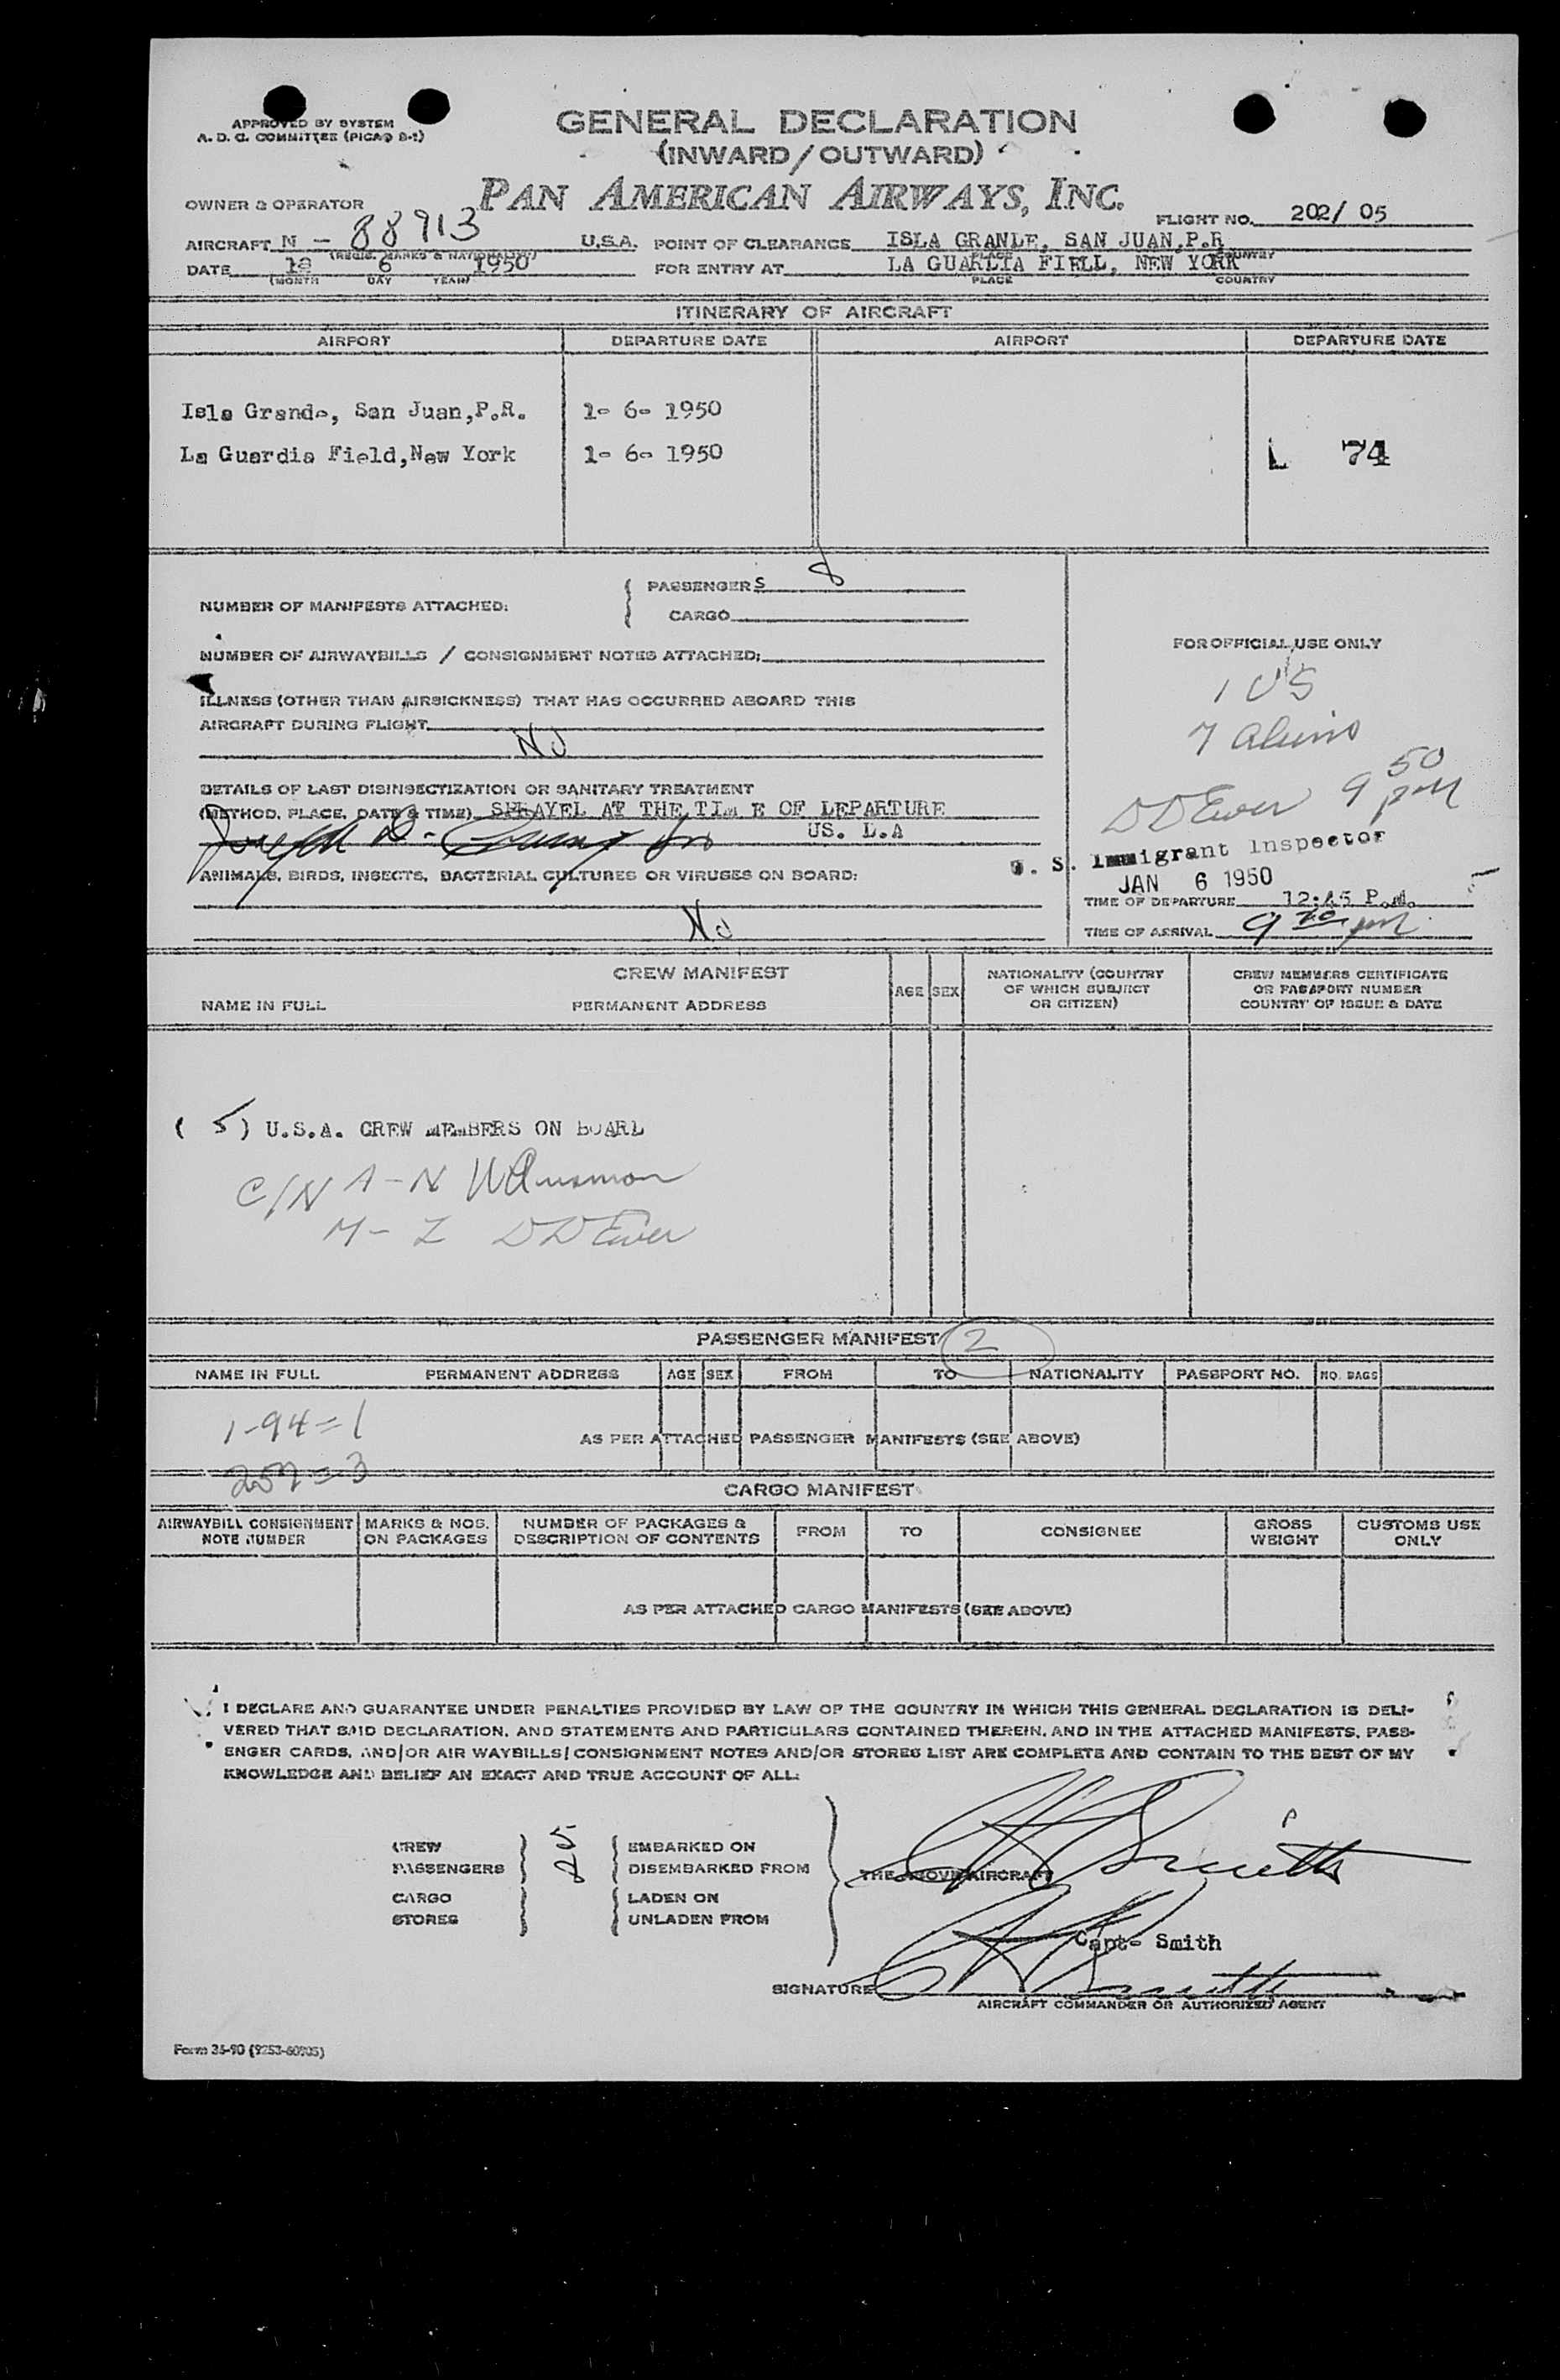 APPROVED BY SYSTEM
A. D. C. COMMITTEE (PICAO 8-1)
GENERAL DECLARATION
(INWARD/OUTWARD)
PAN AMERICAN AIRWAYS, INC.
OWNER & OPERATOR
FLIGHT NO. 202/ 05
AIRCRAFT N - 88913 U.S.A. POINT OF CLEARANCE ISLA GRANDE, SAN JUAN,P.R
(REGIS. MARKS & NATIONALITY) PLACE COUNTRY
DATE 6 1950 FOR ENTRY AT LA GUARDIA FIELD, NEW YORK
(MONTH DAY YEAR) PLACE COUNTRY
ITINERARY OF AIRCRAFT
AIRPORT DEPARTURE DATE AIRPORT DEPARTURE DATE
Isla Grande, San Juan,P.R. 1- 6- 1950
La Guardia Field,New York 1- 6- 1950 L 74
NUMBER OF MANIFESTS ATTACHED: PASSENGERS 8
CARGO
NUMBER OF AIRWAYBILLS / CONSIGNMENT NOTES ATTACHED:
FOR OFFICIAL USE ONLY
1 US
7 aliens
ILLNESS (OTHER THAN AIRSICKNESS) THAT HAS OCCURRED ABOARD THIS
AIRCRAFT DURING FLIGHT
No
DETAILS OF LAST DISINSECTIZATION OR SANITARY TREATMENT
(METHOD, PLACE, DATE & TIME) SPRAYED AT THE TIM E OF DEPARTURE
US. D.A
DD Ewer 9 50 pm
U. S. Immigrant Inspector
JAN 6 1950
ANIMALS, BIRDS, INSECTS, BACTERIAL CULTURES OR VIRUSES ON BOARD:
No
TIME OF DEPARTURE 12:45 P.M.
TIME OF ARRIVAL 9 pm
CREW MANIFEST
NAME IN FULL PERMANENT ADDRESS AGE SEX NATIONALITY (COUNTRY OF WHICH SUBJECT OR CITIZEN) CREW MEMBERS CERTIFICATE OR PASSPORT NUMBER COUNTRY OF ISSUE & DATE
( 5 ) U.S.A. CREW MEMBERS ON BOARD
C/N A - N
M - Z DD Ewer
PASSENGER MANIFEST 2
NAME IN FULL PERMANENT ADDRESS AGE SEX FROM TO NATIONALITY PASSPORT NO. NO. BAGS
1-94 = 1
AS PER ATTACHED PASSENGER MANIFESTS (SEE ABOVE)
257 = 3
CARGO MANIFEST
AIRWAYBILL CONSIGNMENT NOTE NUMBER MARKS & NOS. ON PACKAGES NUMBER OF PACKAGES & DESCRIPTION OF CONTENTS FROM TO CONSIGNEE GROSS WEIGHT CUSTOMS USE ONLY
AS PER ATTACHED CARGO MANIFESTS (SEE ABOVE)
I DECLARE AND GUARANTEE UNDER PENALTIES PROVIDED BY LAW OF THE COUNTRY IN WHICH THIS GENERAL DECLARATION IS DELI-
VERED THAT SAID DECLARATION, AND STATEMENTS AND PARTICULARS CONTAINED THEREIN, AND IN THE ATTACHED MANIFESTS, PASS-
ENGER CARDS, AND/OR AIR WAYBILLS/CONSIGNMENT NOTES AND/OR STORES LIST ARE COMPLETE AND CONTAIN TO THE BEST OF MY
KNOWLEDGE AND BELIEF AN EXACT AND TRUE ACCOUNT OF ALL:
CREW 5 EMBARKED ON
PASSENGERS 8 DISEMBARKED FROM THE ABOVE AIRCRAFT
CARGO LADEN ON
STORES UNLADEN FROM
Capt- Smith
SIGNATURE
AIRCRAFT COMMANDER OR AUTHORIZED AGENT
Form 36-90 (9253-60905)